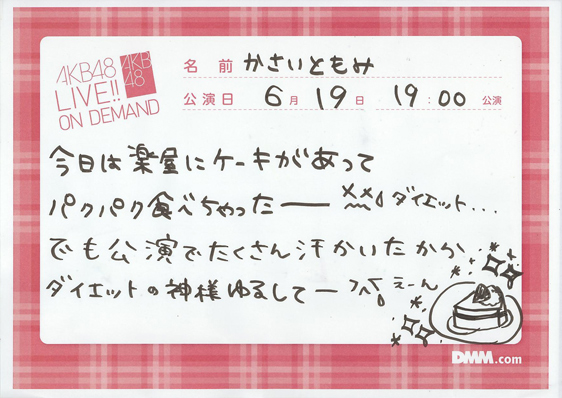 AKB48
LIVE!!
ON DEMAND
AKB
48
名前 かさいともみ
公演日 6月19日 19:00 公演
今日は楽屋にケーキがあって
パクパク食べちゃったー ダイエット...
でも公演でたくさん汗かいたから
ダイエットの神様ゆるしてー えーん
DMM.com